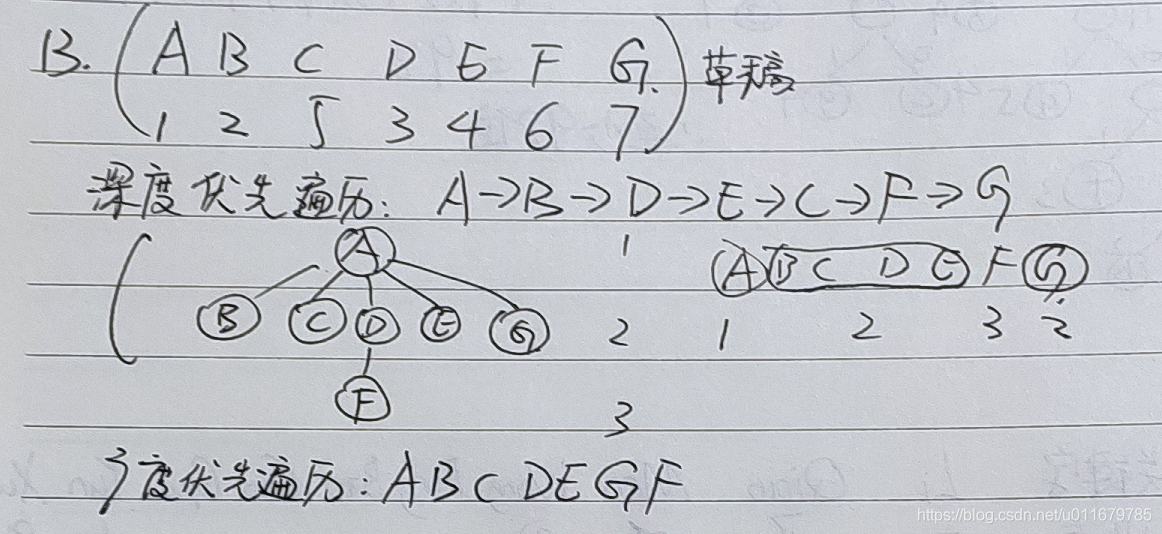 B. ( A B C D E F G. ) 草稿
1 2 5 3 4 6 7
深度优先遍历: A→B→D→E→C→F→G
A 1 A B C D E F G
B C D E G 2 1 2 3 2
F 3
广度优先遍历: A B C D E G F
https://blog.csdn.net/u011679785